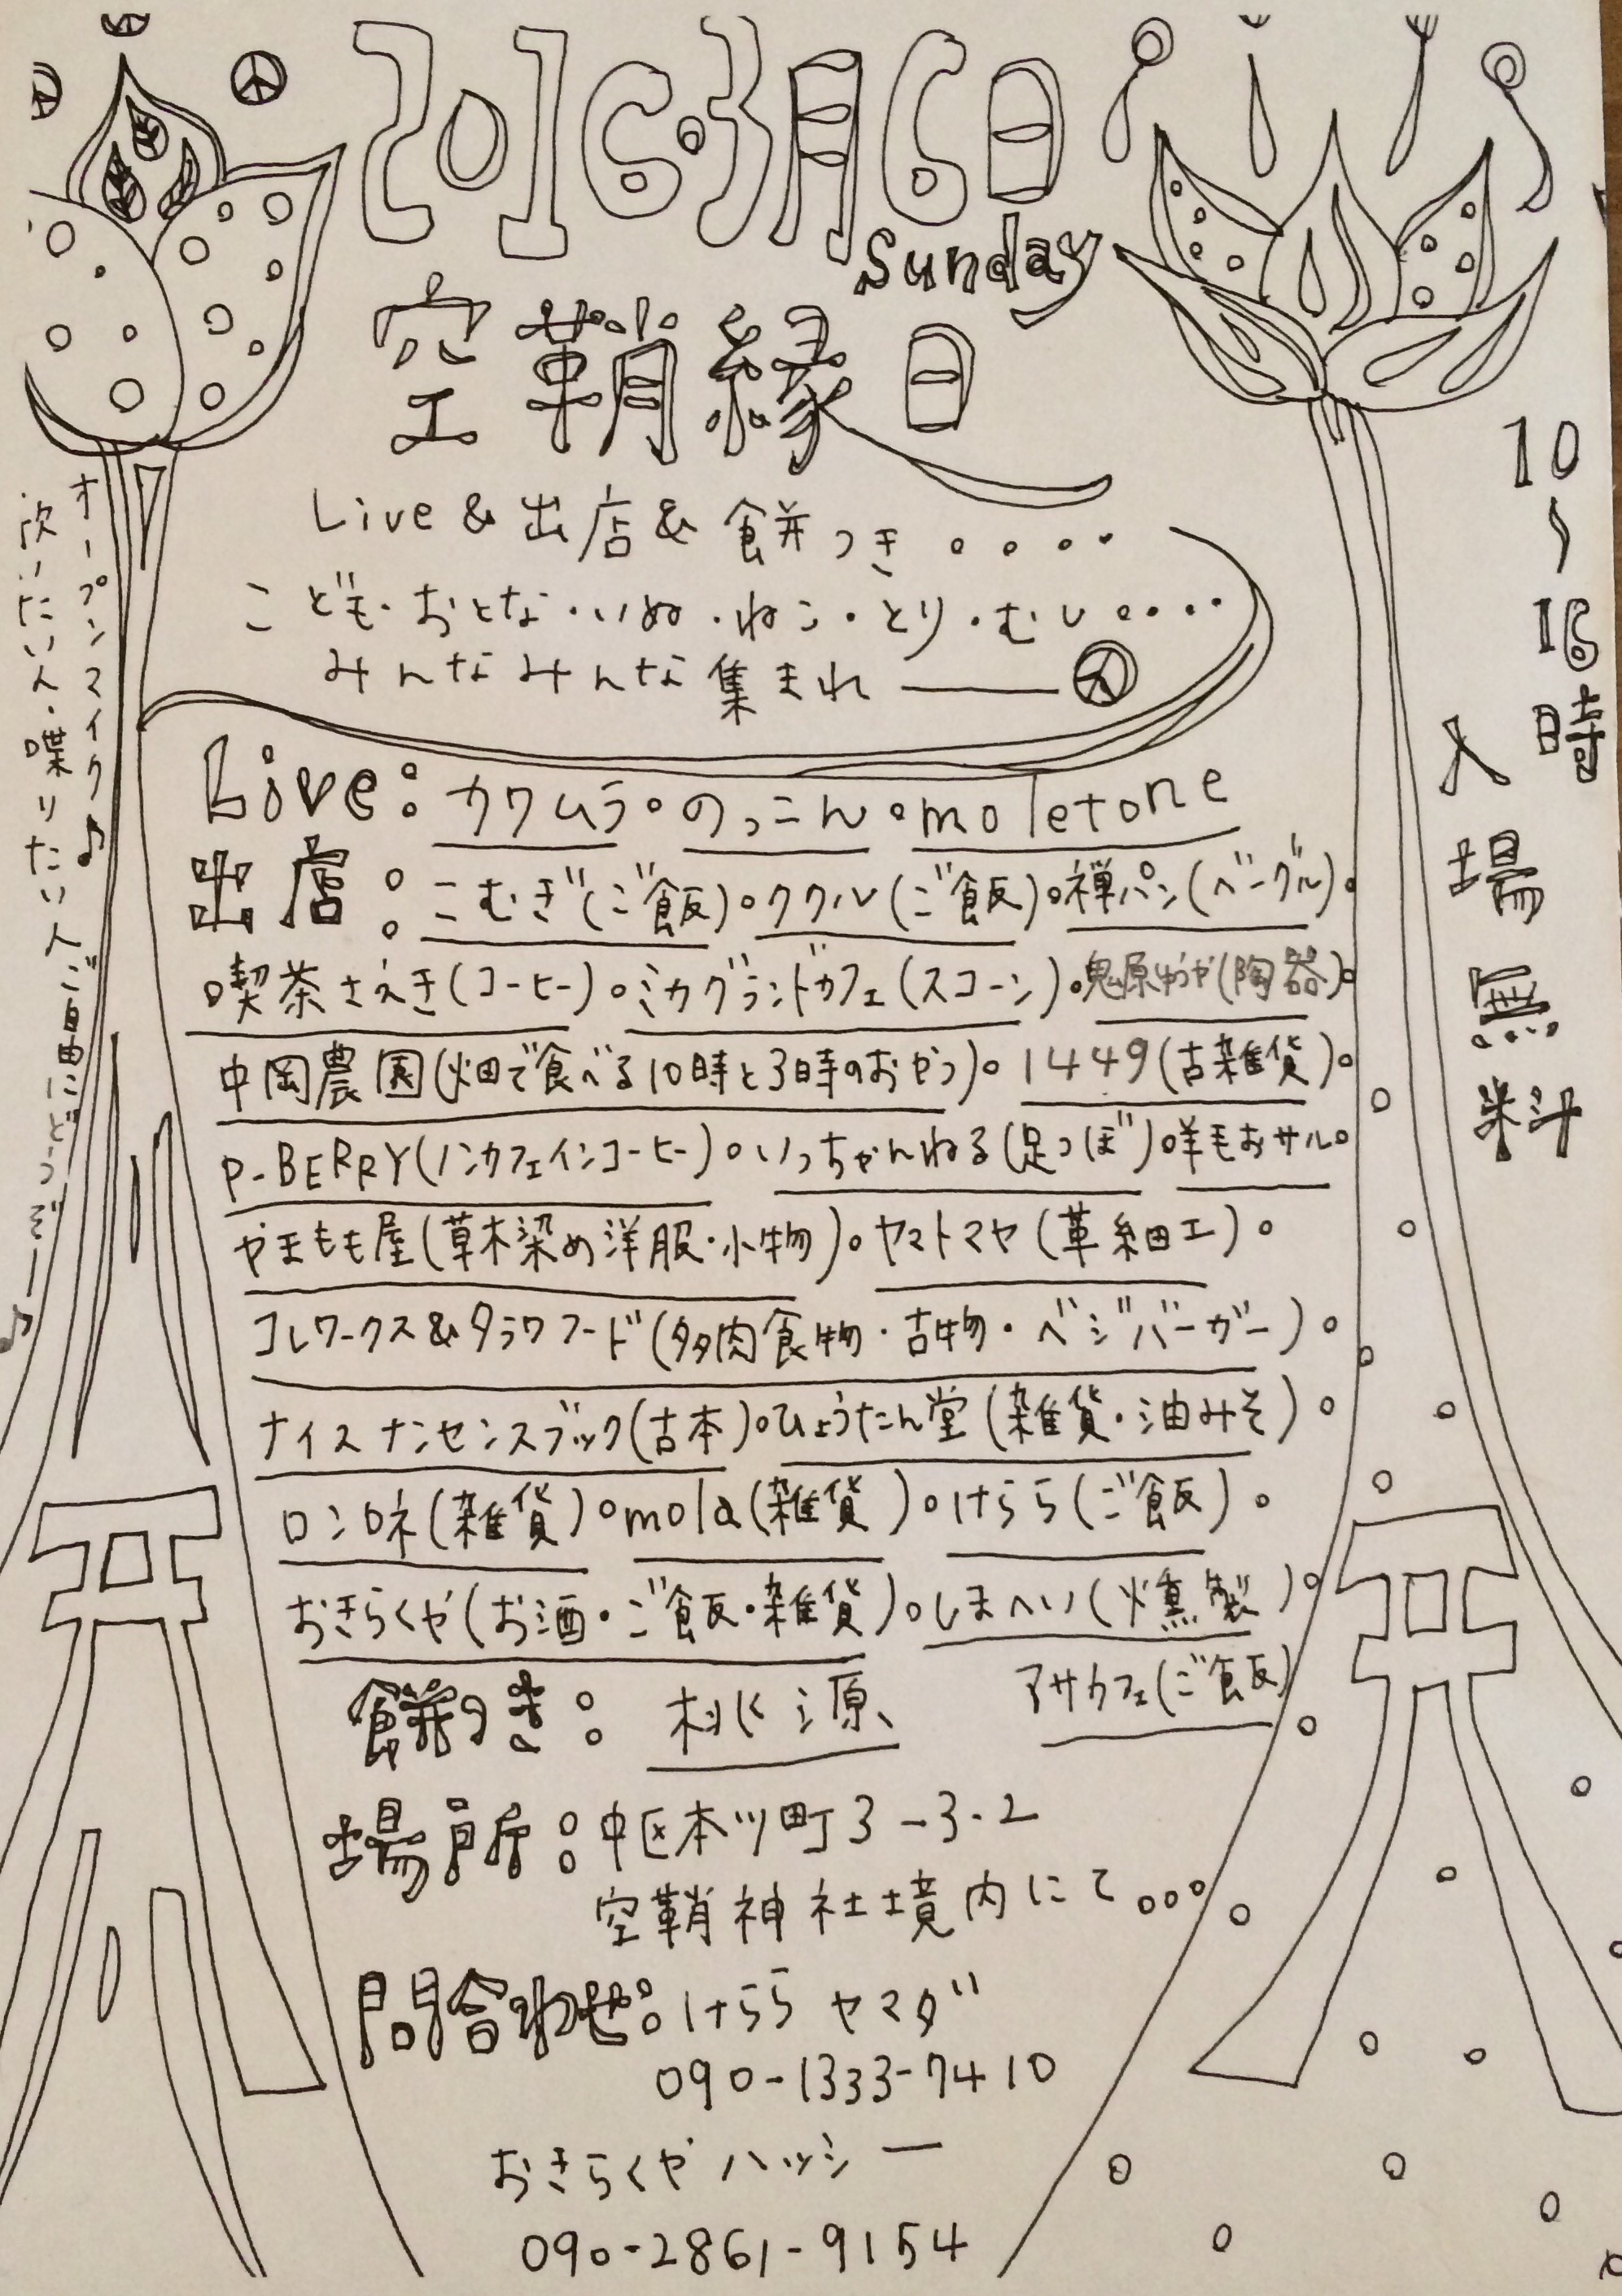 2016.3月6日
Sunday
空鞘縁日
Live & 出店 & 餅つき。。。。
こども・おとな・いぬ・ねこ・とり・むし。・・・
みんなみんな集まれ――
10〜16時
入場無料
オープンマイク♪
吹いたい人・喋りたい人ご自由にどうぞー♪
Live:カワムラ。のっこん。moletone
出店:こむぎ(ご飯)。ククル(ご飯)。禅パン(ベーグル)。
。喫茶さえき(コーヒー)。ミカグランドカフェ(スコーン)。鬼原(陶器)。
中岡農園(畑で食べる10時と3時のおやつ)。1449(古雑貨)。
P-BERRY(ノンカフェインコーヒー)。いっちゃんねる(足つぼ)。羊毛おサル。
やまもも屋(草木染め洋服・小物)。ヤマトマヤ(革細工)。
コレワークス&タラワフード(多肉食物・古物・ベジバーガー)。
ナイスナンセンスブック(古本)。ひょうたん堂(雑貨・油みそ)。
ロンロネ(雑貨)。mola(雑貨)。けらら(ご飯)。
おきらくや(お酒・ご飯・雑貨)。しまへい(燻製)。
アサカフェ(ご飯)
餅つき:桃源
場所:中区本川町3-3-2
空鞘神社境内にて。。。
問合わせ:けらら ヤマダ
090-1333-7410
おきらくや ハッシー
090-2861-9154